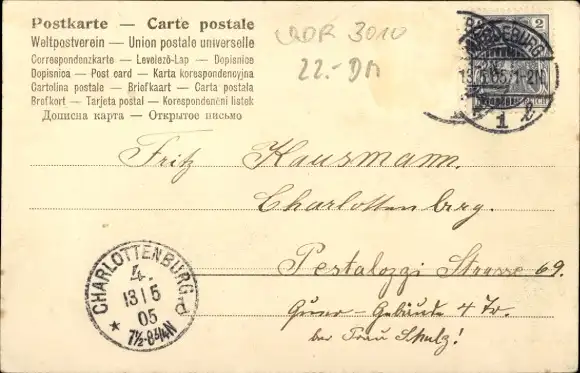 Postkarte — Carte postale
Weltpostverein — Union postale universelle
Correspondenzkarte — Levelező-Lap — Dopisnice
Dopisnica — Post card — Karta korespondencyjna
Cartolina postale — Briefkaart — Carta postala
Brefkort — Tarjeta postal — Korespondenčni listek
Дописна карта — Открытое письмо
3010
22.- DM
2
MAGDEBURG
13.5.05.1-2N
1
Fritz Hausmann.
Charlottenberg.
Pestalozzi Strasse 69.
Quer-Gebäude 4 Tr.
bei Frau Schulz!
CHARLOTTENBURG
4.
13 | 5
05
7½-8¾N